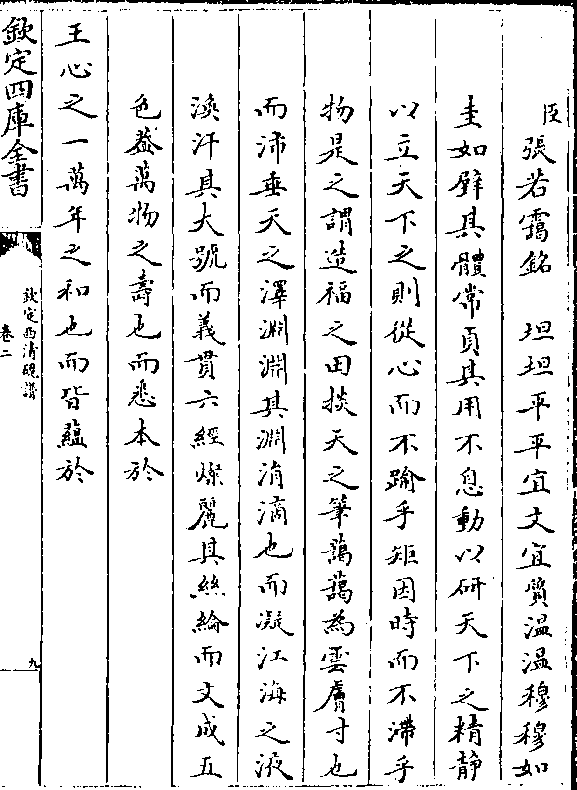 臣張若靄銘　坦坦平平宜文宜質温温穆穆如
圭如璧其體常貞其用不息動以研天下之精静
以立天下之則從心而不踰乎矩因時而不滯乎
物是之謂造福之田掞天之筆藹藹為雲膚寸也
而沛垂天之澤淵淵其淵涓滴也而凝江海之液
渙汗其大號而義貫六經燦麗其絲綸而文成五
色盎萬物之壽也而悉本於
王心之一萬年之和也而皆藴於
欽定四庫全書
欽定西清硯譜
卷二
九